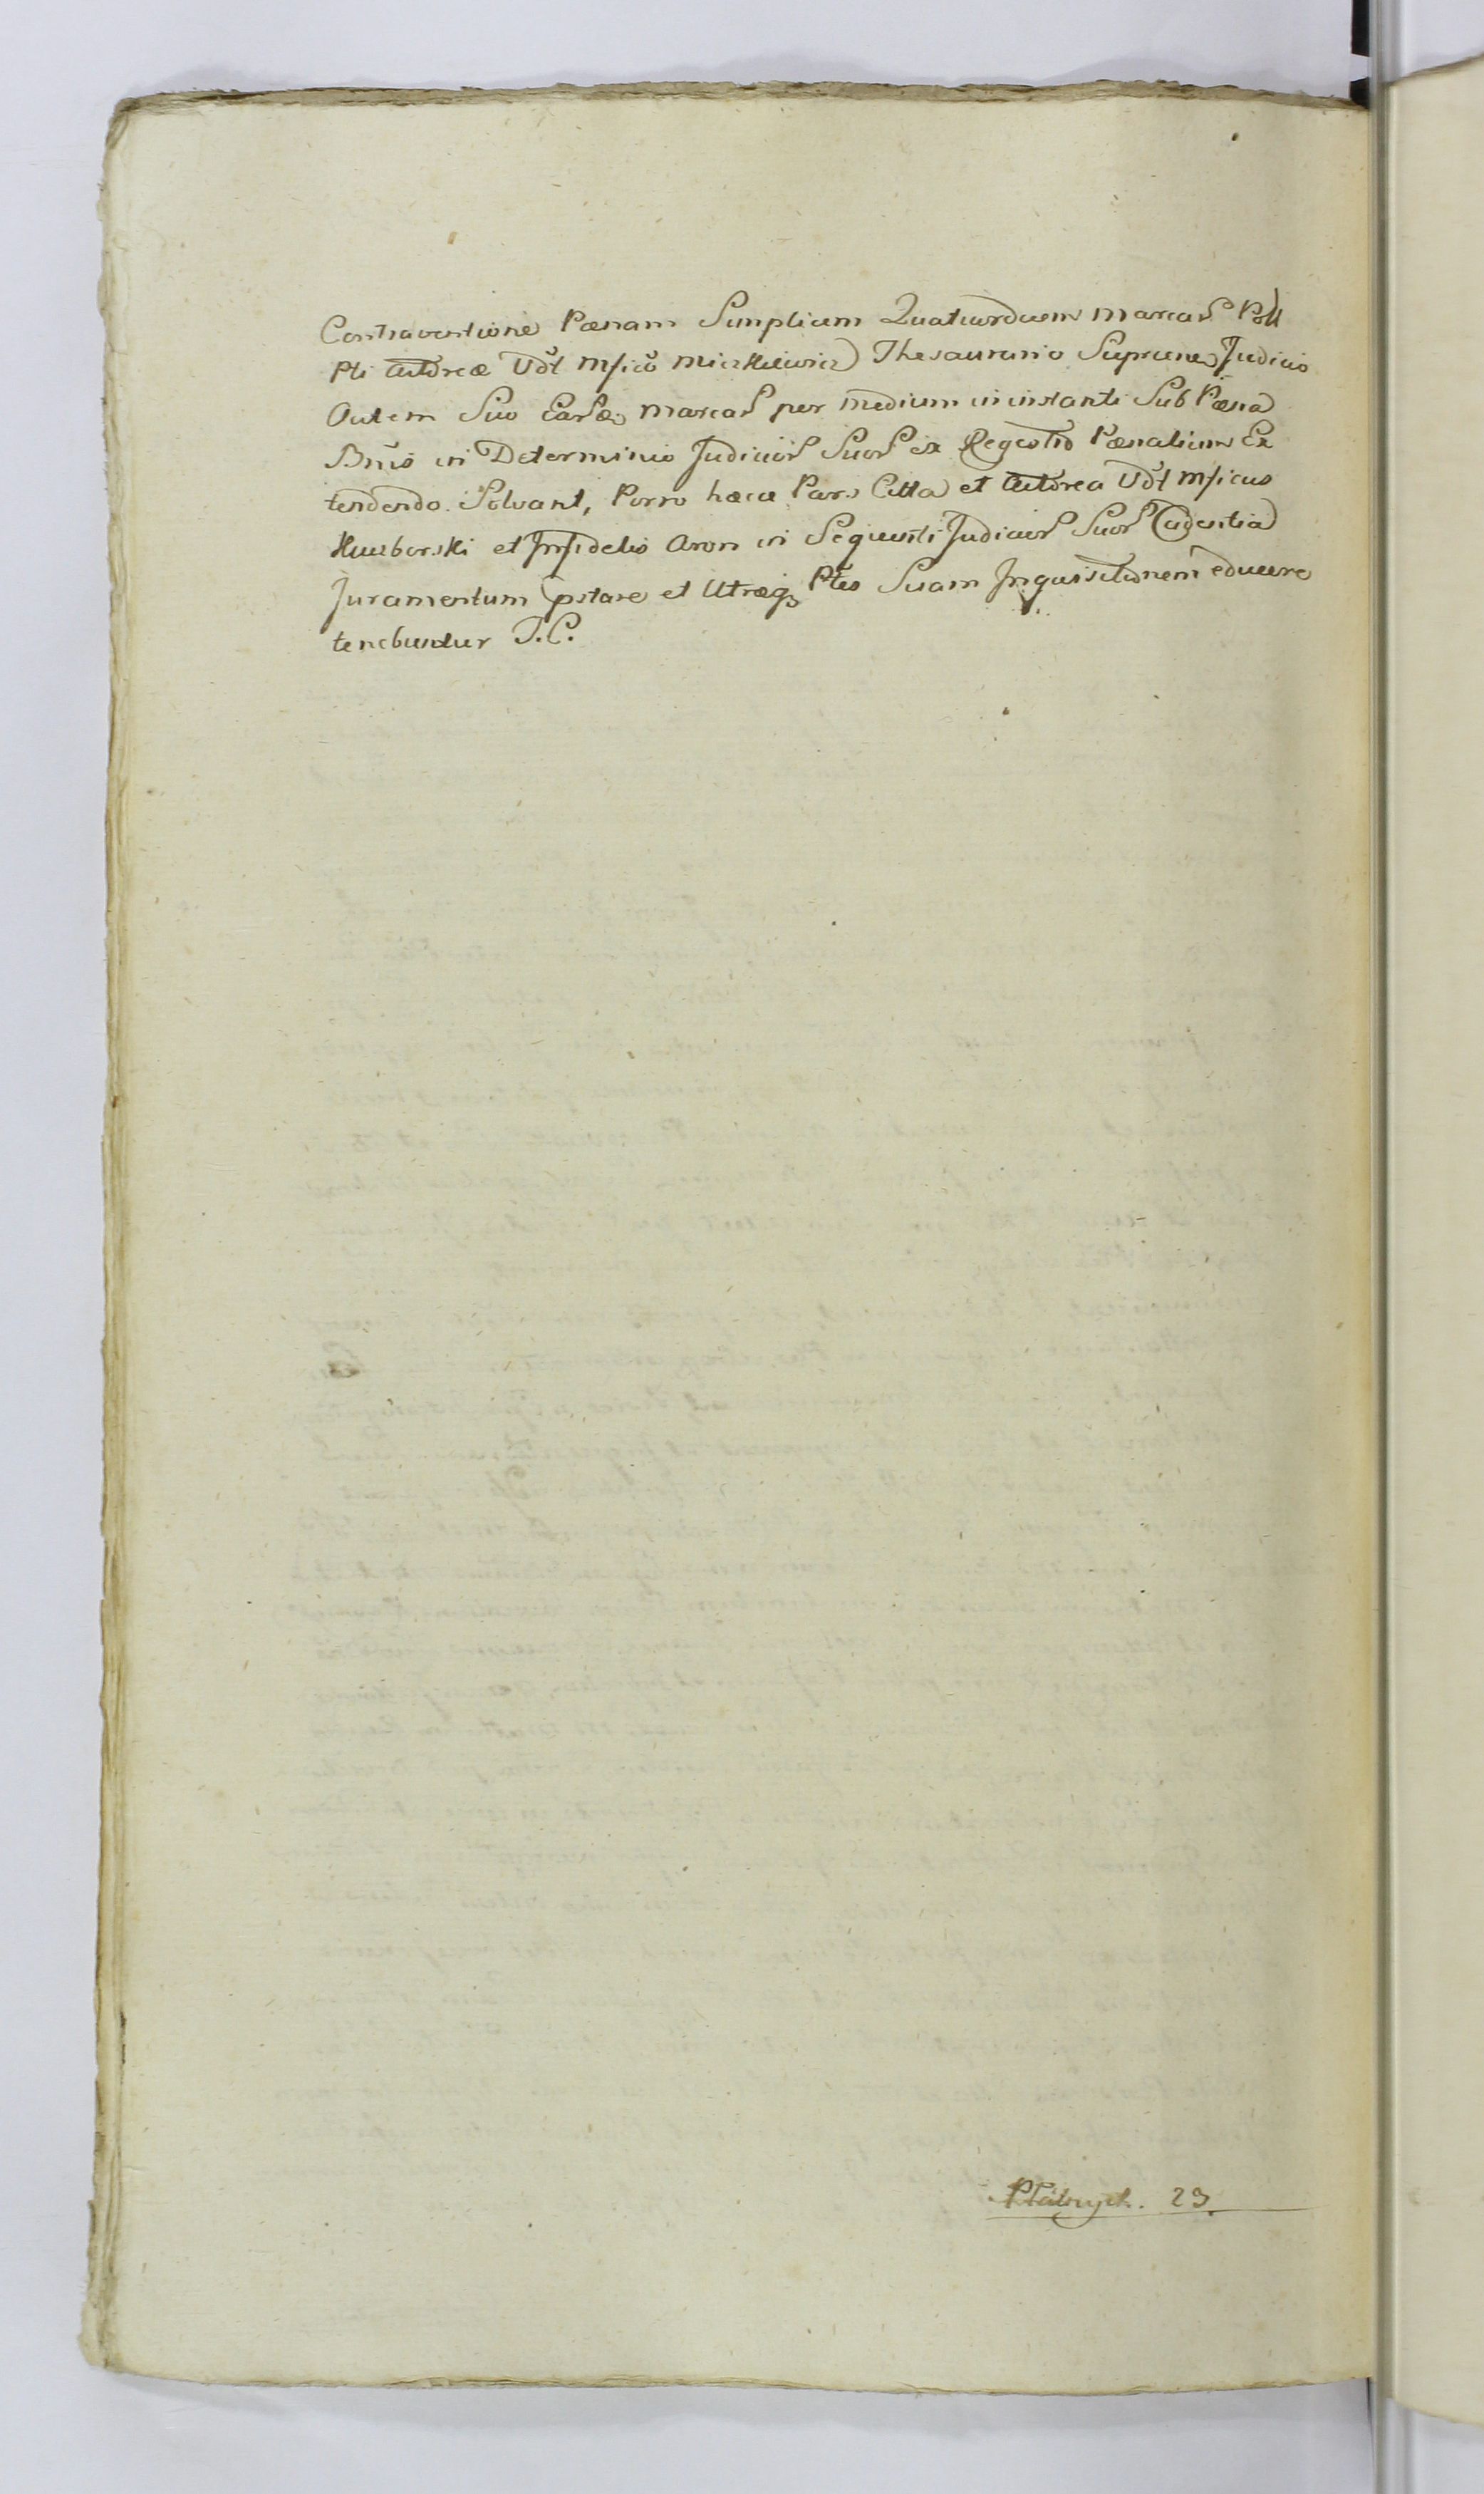 Contraventione Pœnam Simplicem Quatuordecem Marcar Poll
Pti Actoreæ Vdt Mfico Miczkiewicz Thesaurario Supreme Judicio
Autem Suo Earde Marcar per medium in instanti Sub Pœna
Bnis in Determinio Judicior Suor ex Regestro Pœnalium Ex
tendendo Solvant, Porro hæcce Pars Citta et Actorea Vdt Mficus
et Infidelis Aron in Sequenti Judicior Suor Cadentia
Juramentum pstare et Utræq Ptes Suam Inquisitionem educere
tenebuntur J.C.
23.